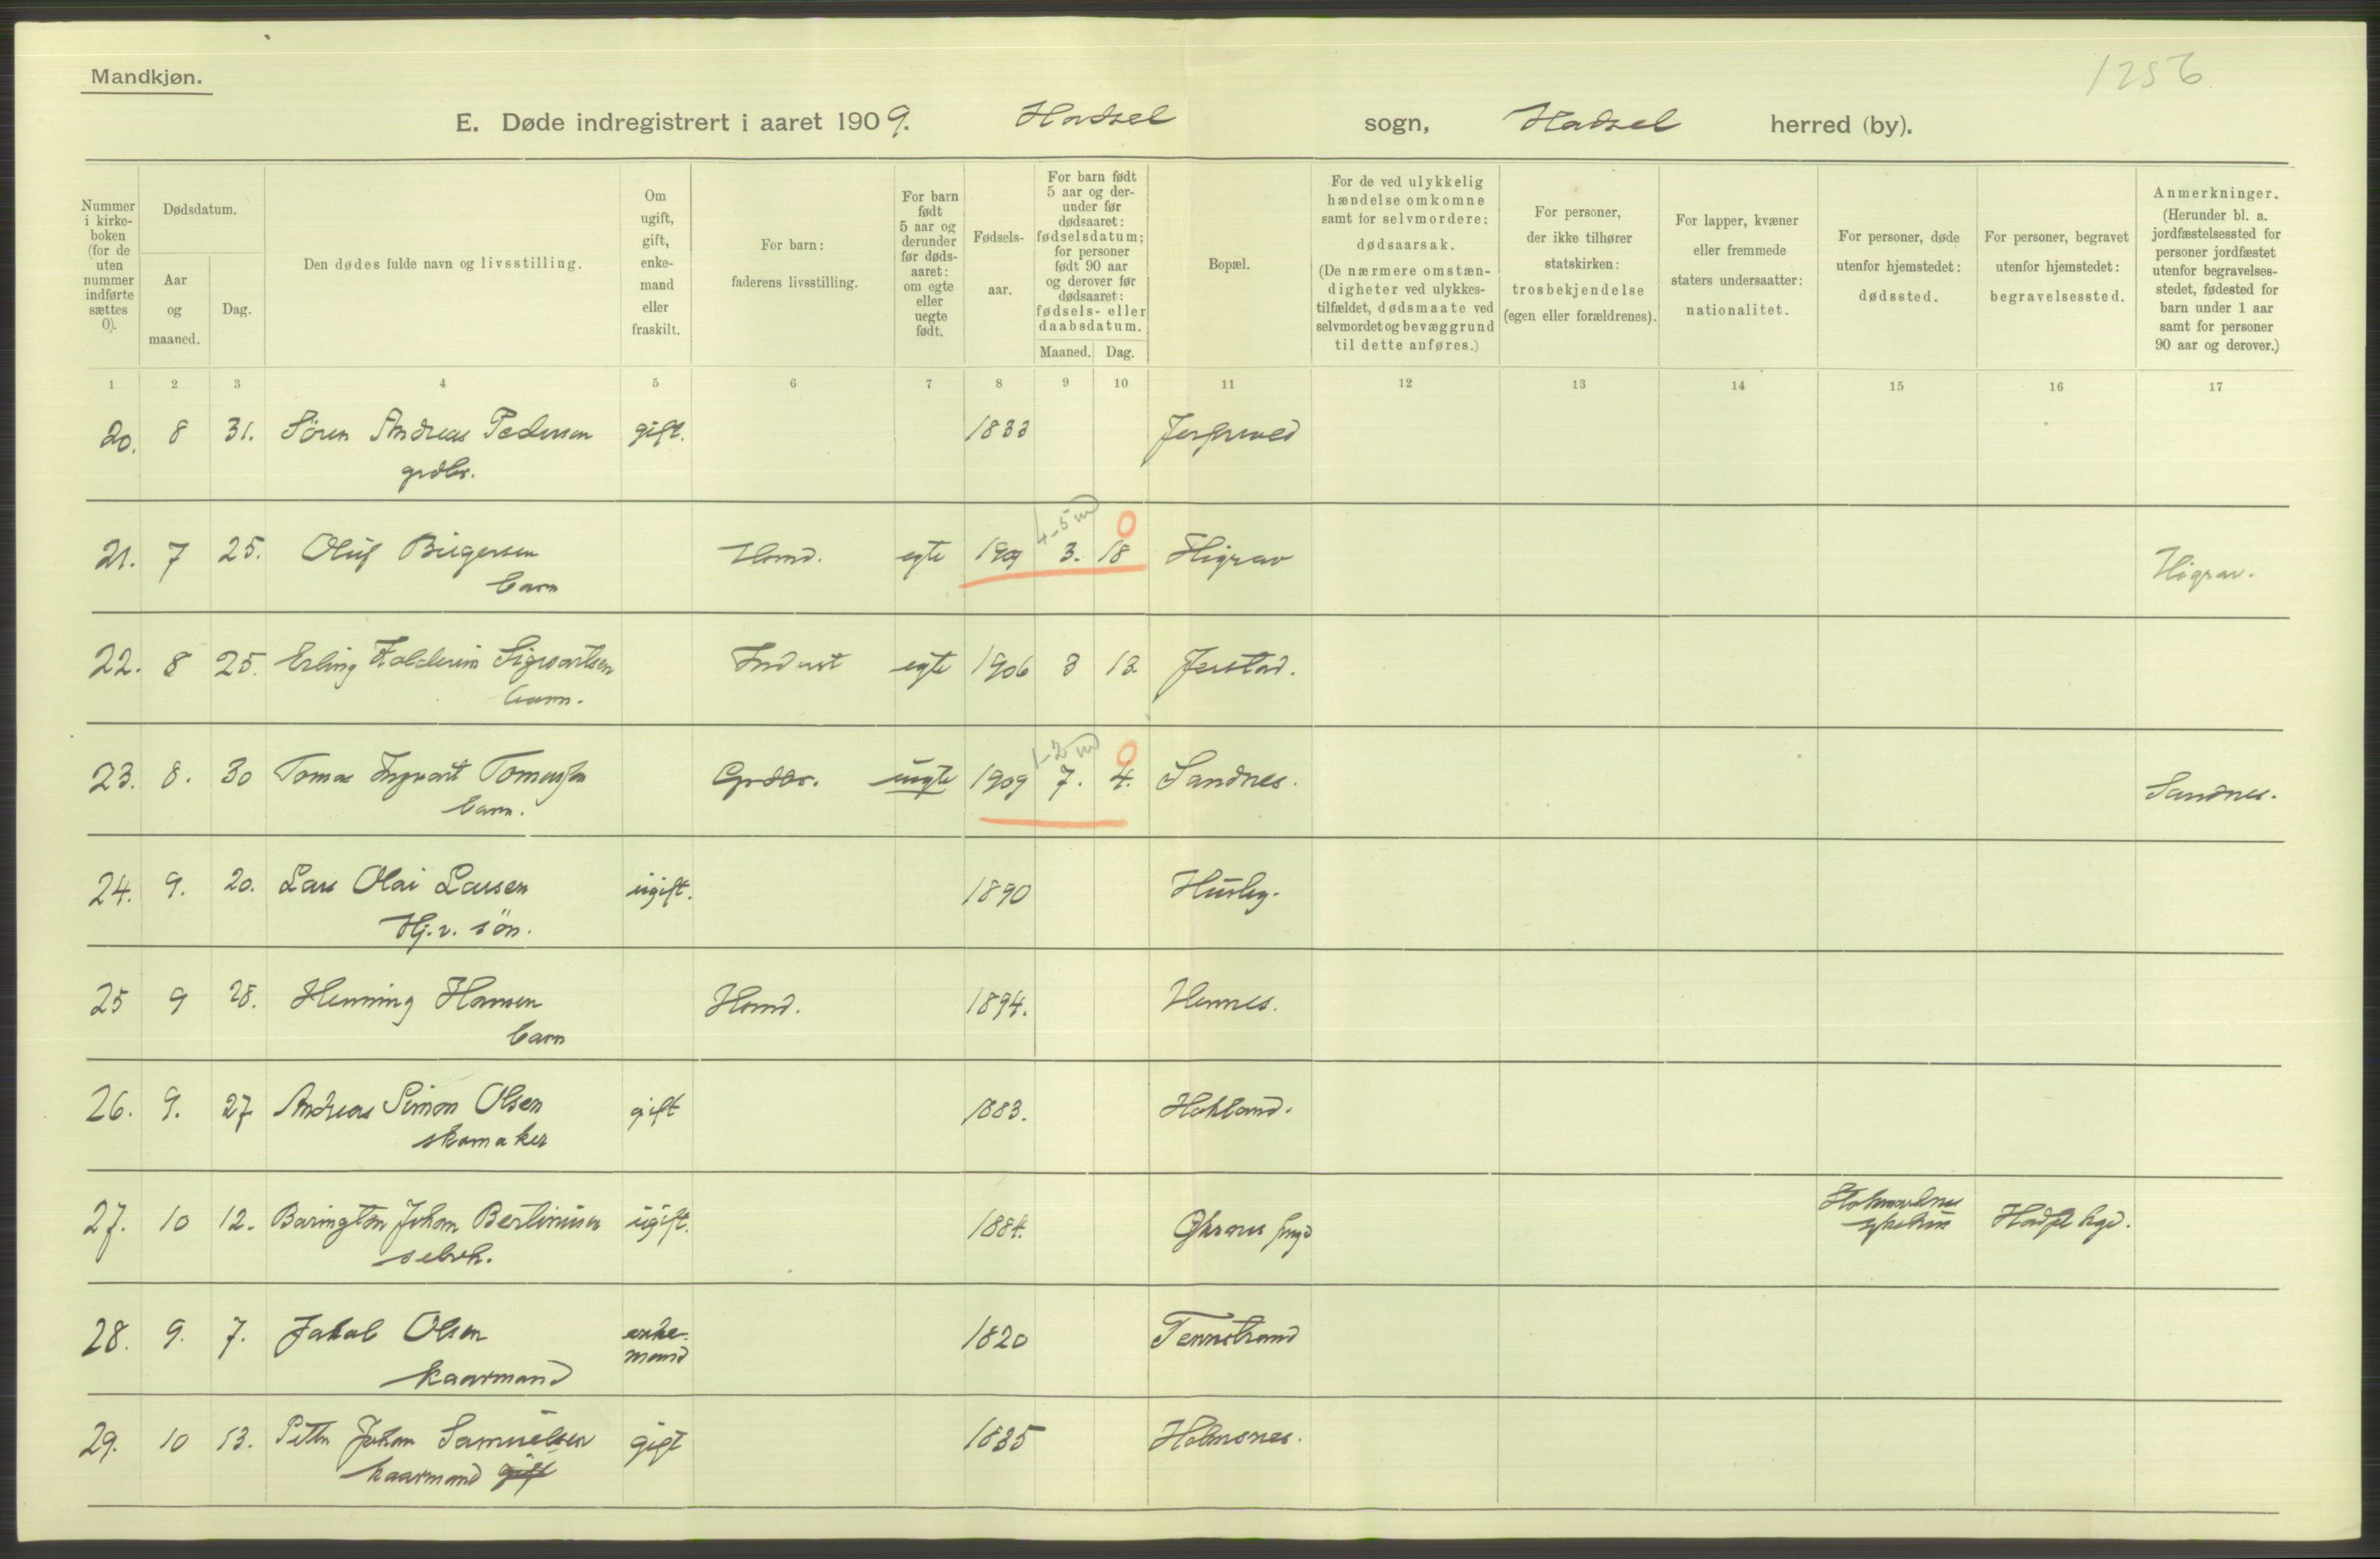 Mandkjøn.
1256
E. Døde indregistrert i aaret 1909. Hadsel sogn, Hadsel herred (by).
Nummer i kirke-boken (for de uten nummer indførte sættes 0).
Dødsdatum.
Aar og maaned.
Dag.
Den dødes fulde navn og livsstilling.
Om ugift, gift, enke-mand eller fraskilt.
For barn: faderens livsstilling.
For barn født 5 aar og derunder før døds-aaret: om egte eller uegte født.
Fødsels-aar.
For barn født 5 aar og der-under før dødsaaret: fødselsdatum; for personer født 90 aar og derover før dødsaaret: fødsels- eller daabsdatum.
Maaned. Dag.
Bopæl.
For de ved ulykkelig hændelse omkomne samt for selvmordere: dødsaarsak. (De nærmere omstæn-digheter ved ulykkes-tilfældet, dødsmaate ved selvmordet og bevæggrund til dette anføres.)
For personer, der ikke tilhører statskirken: trosbekjendelse (egen eller forældrenes).
For lapper, kvæner eller fremmede staters undersaatter: nationalitet.
For personer, døde utenfor hjemstedet: dødssted.
For personer, begravet utenfor hjemstedet: begravelsessted.
Anmerkninger. (Herunder bl. a. jordfæstelsessted for personer jordfæstet utenfor begravelses-stedet, fødested for barn under 1 aar samt for personer 90 aar og derover.)
1 2 3 4 5 6 7 8 9 10 11 12 13 14 15 16 17
20. 8 31. Sören Andreas Pedersen gift. 1833
grdbr.
4-5 md 0
21. 7 25. Oluf Birgersen Hmd. egte 1909 3. 18 Higrav Higrav.
barn
22. 8 25. Erling Sigvartsen Indust egte 1906 8 13. Jerstad.
barn.
1-2 md 0
23. 8. 30 Tomas Ingvart Tomassen Grdbr. uegte 1909 7. 4. Sandnes. Sandnes.
barn.
24. 9. 20. Lars Olai Larsen ugift. 1890 Husby.
Hj.v. sön.
25 9 28. Henning Hansen Hmd. 1894. Hennes.
barn
26. 9. 27 Andreas Simon Olsen gift 1883. Hokland.
skomaker
27. 10 12. Barington Johan Bertinusen ugift. 1884. Stokmarknes sykehus Hadsel kgd.
selvh.
28. 9. 7. Jakob Olsen enke-mand 1820 Tennstrand
kaarmand
29. 10 13. Petter Johan Samuelsen gift 1835 Holmsnes.
kaarmand gift